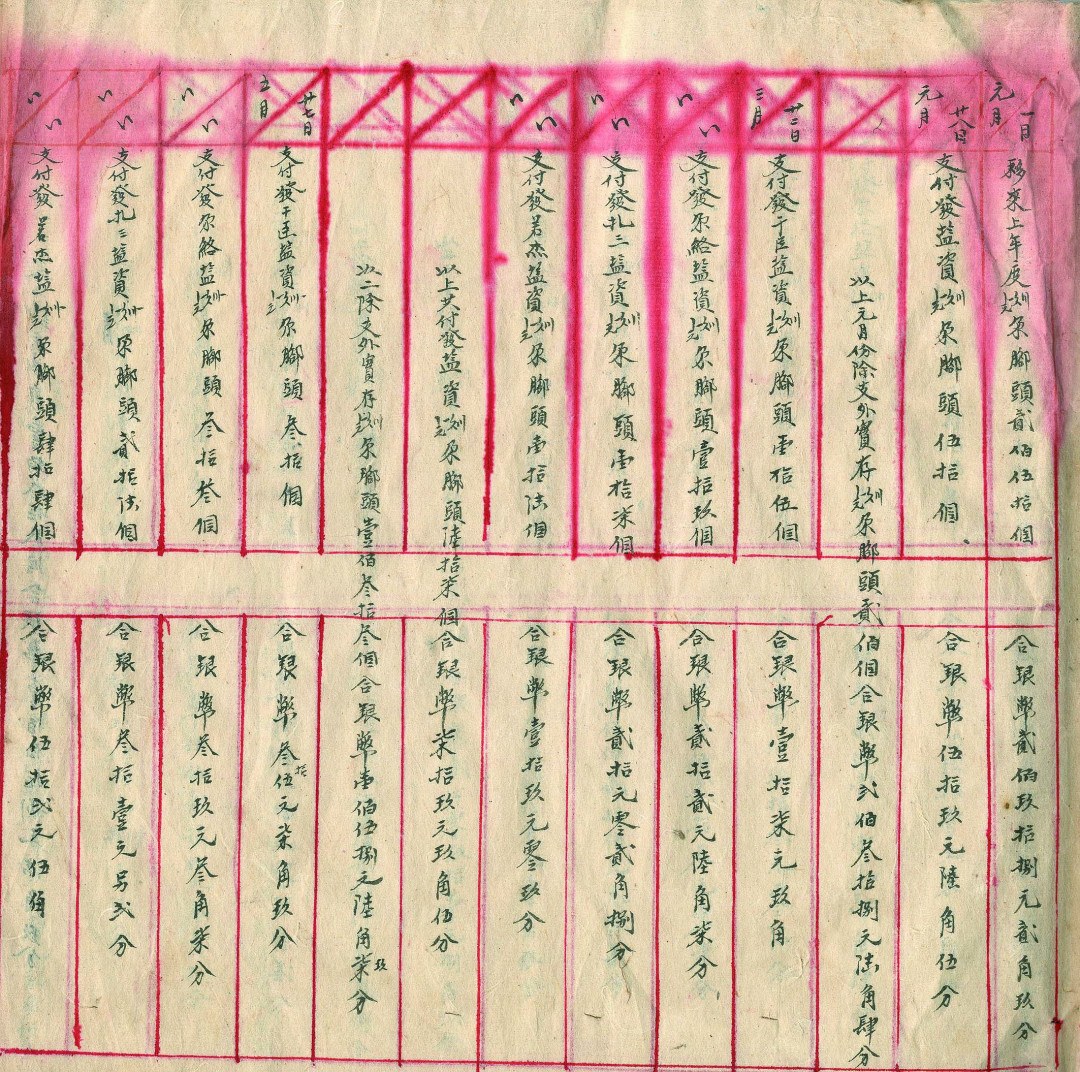 元月 一日 移來上年度划原腳頭貳佰伍拾個 合銀幣貳佰玖拾捌元貳角玖分
元月 廿八日 支付發益資划原腳頭伍拾個 合銀幣伍拾玖元陸角伍分
以上元月份除支外實存划原腳頭貳佰個合銀幣弍佰叁拾捌元陆角肆分
三月 廿二日 支付發益資划原腳頭壹拾伍個 合銀幣壹拾柒元玖角
支付發原絡益資划原腳頭壹拾玖個 合銀幣貳拾貳元陸角柒分
支付發扎三益資划原腳頭壹拾柒個 合銀幣貳拾元零貳角捌分
支付發若杰益資划原腳頭壹拾陆個 合銀幣壹拾玖元零玖分
以上共付發益資划原腳頭陸拾柒個合銀幣柒拾玖元玖角伍分
以二除支外實存划原腳頭壹佰叁拾叁個合銀幣壹佰伍捌元陸角柒玖分
五月 廿七日 支付發益資划原腳頭叁拾個 合銀幣叁拾伍元柒角玖分
支付發原絡益划原腳頭叁拾叁個 合銀幣叁拾玖元叁角柒分
支付發扎三益資划原腳頭貳拾陆個 合銀幣叁拾壹元另弍分
支付發若杰益划原腳頭肆拾肆個 合銀幣伍拾弍元伍角